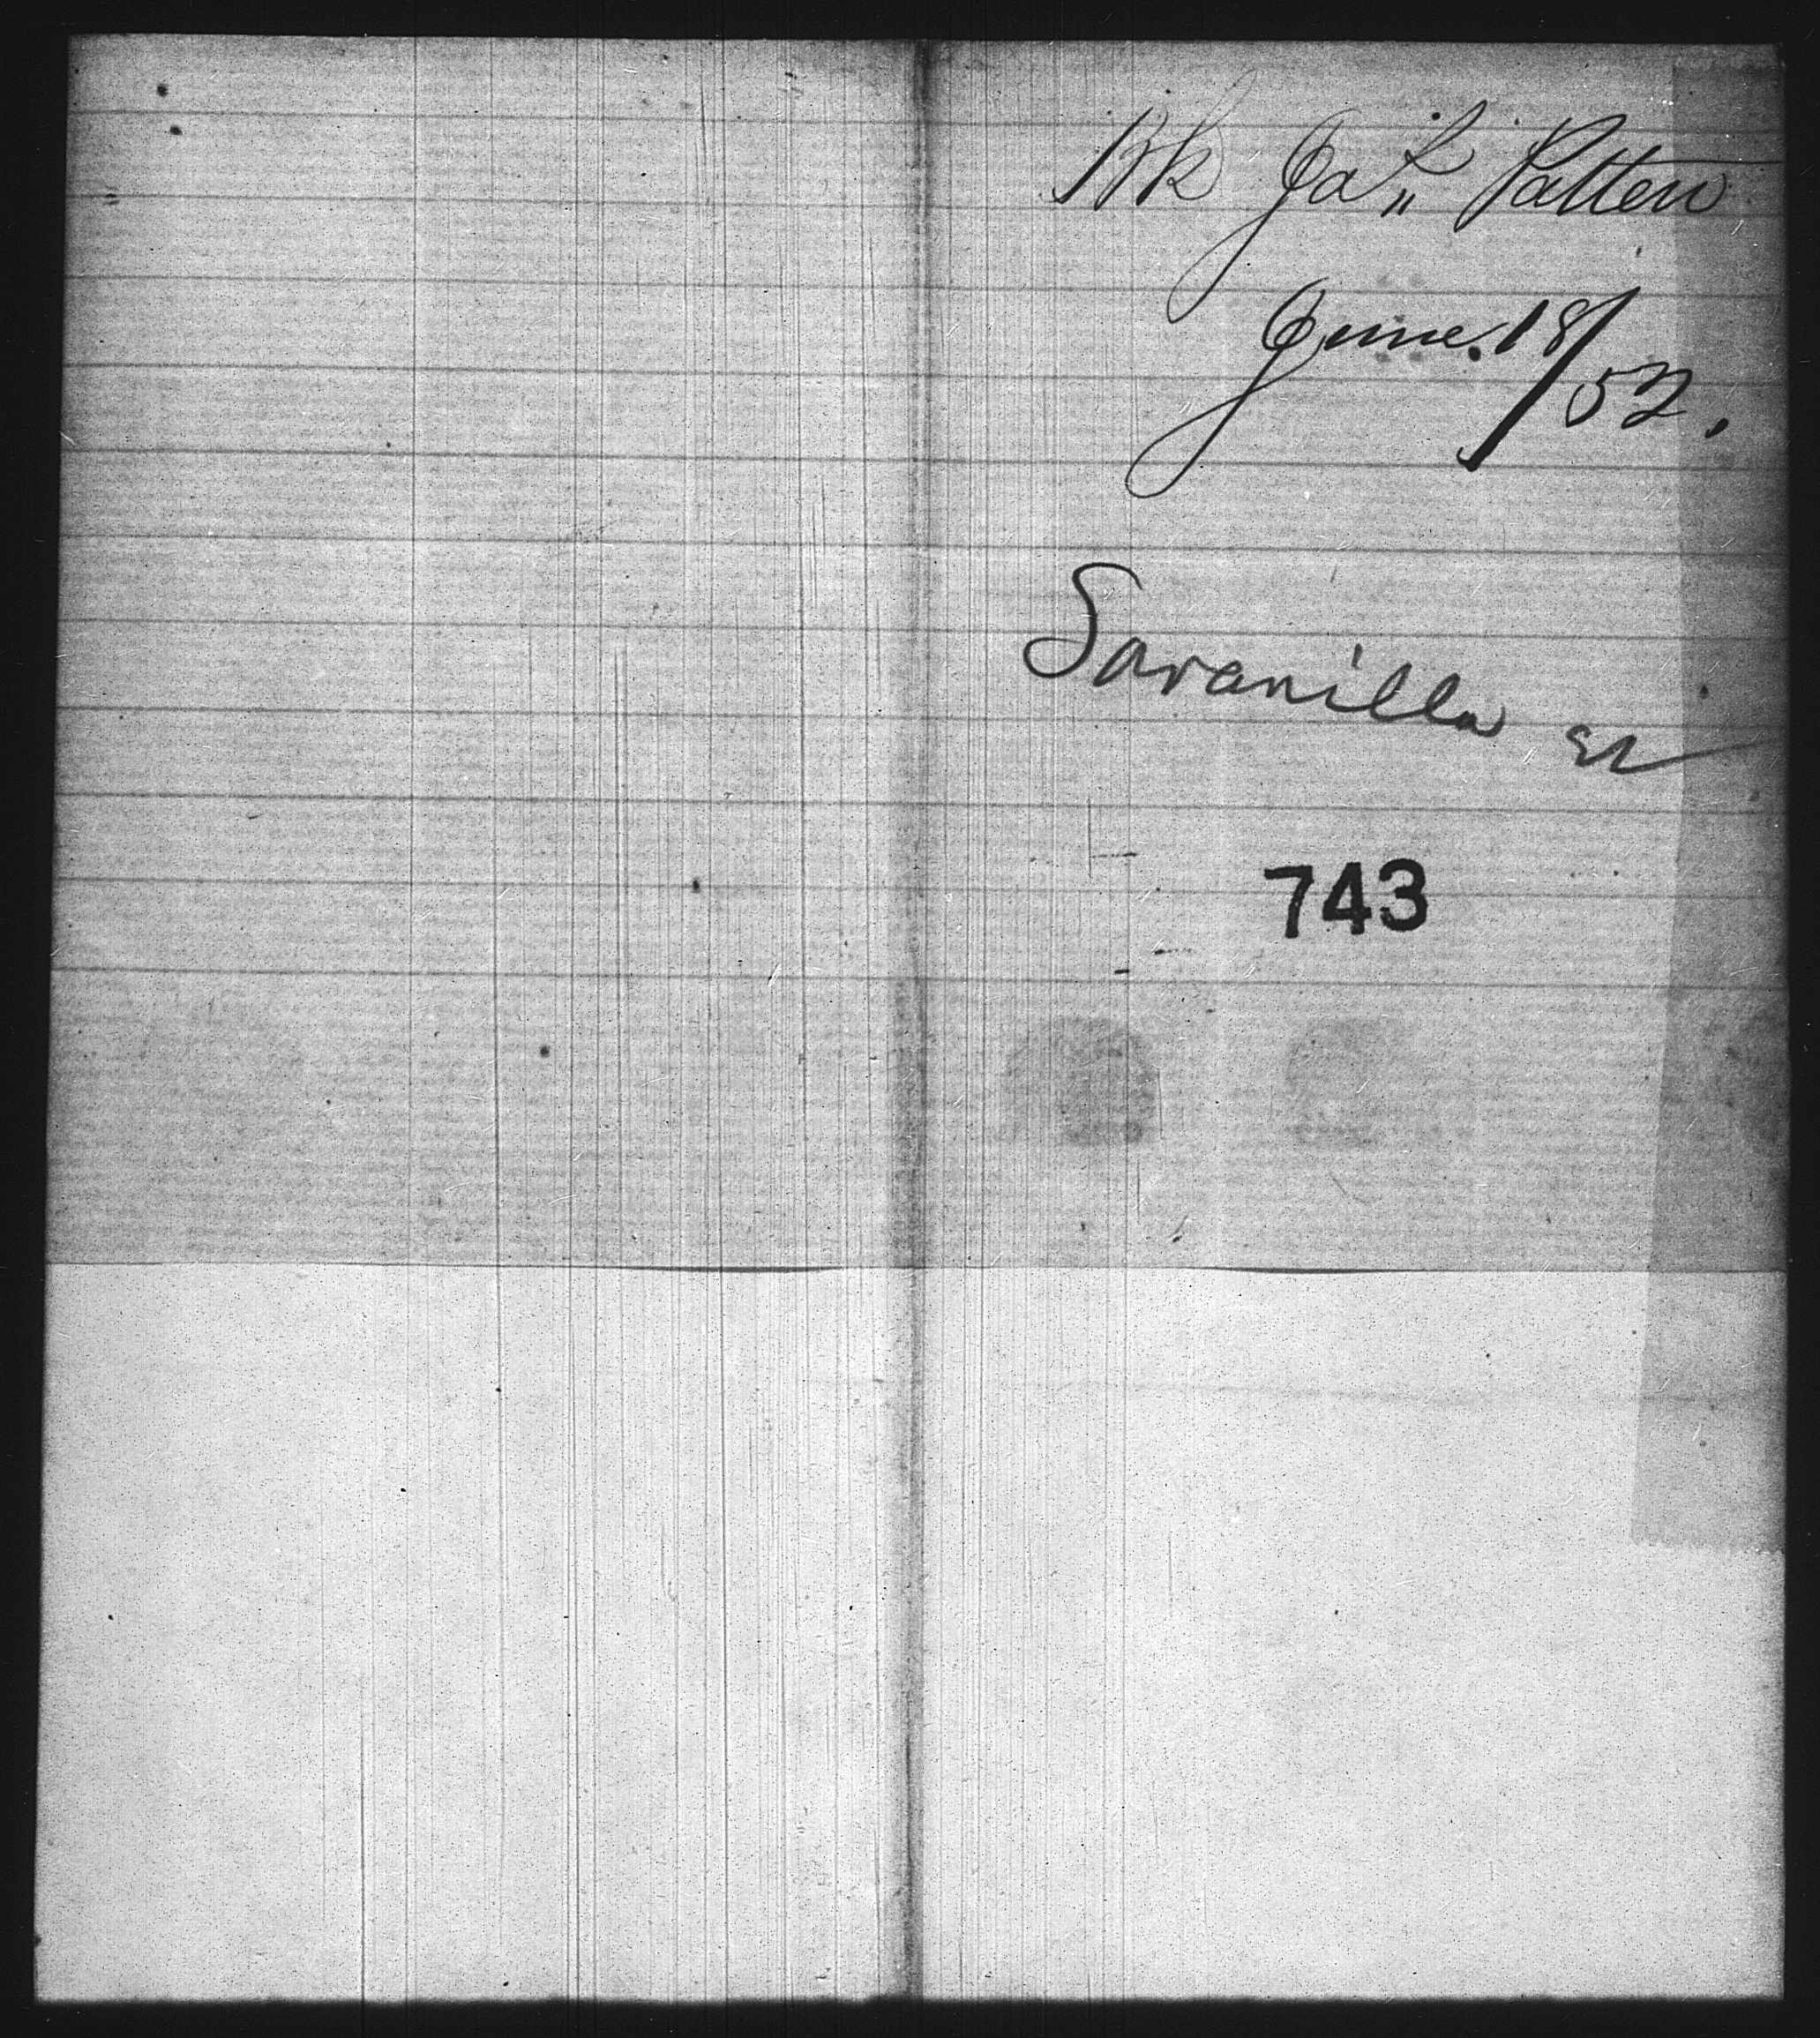 Bk Jas Patten
June. 18/52.
Savanilla
743